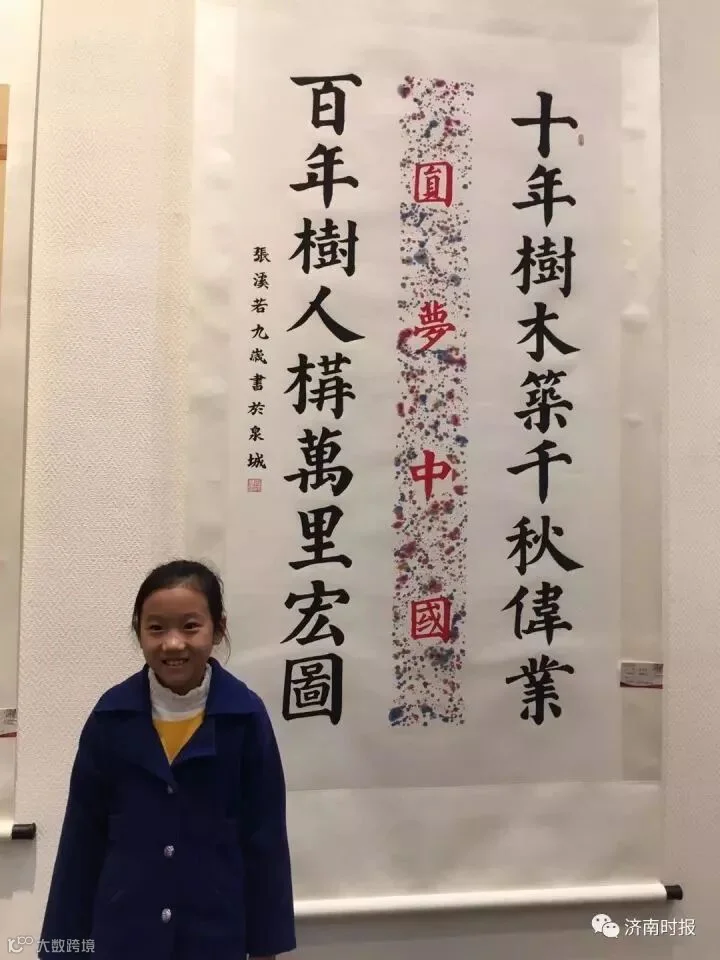 十年樹木築千秋偉業
圓夢中國
百年樹人構萬里宏圖
張溪若九歲書於泉城
大数跨境
济南时报